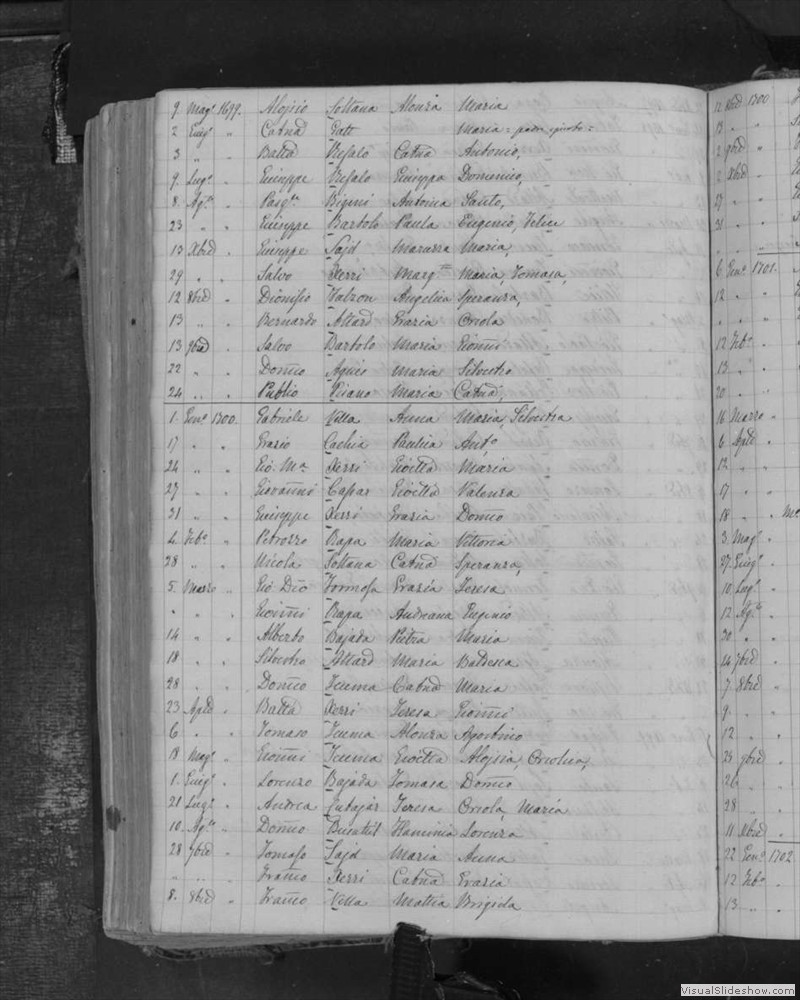 9. Mag.º 1699. Aloisio Soltana Alonza Maria
2 Giug.º " Catnd Gatt Maria = padre ignoto =
3 " " Battā Refalo Catnd Antonio,
9. Lug.º " Giuseppe Refalo Giuseppa Domenico,
8. Ag.to " Pasq.le Bigeni Antonia Santo,
23 " " Giuseppe Bartolo Paula Eugenio, Felice
13 Xbrē . Giuseppe Sajd Maria,
29 " . Salvo Xerri Marg.ta Maria, Tomasa,
12 8brē " Dionisio Falzon Angelica Speranza,
13 " . Bernardo Attard Grazia Oriola
13 9brē . Salvo Bartolo Maria Gionni
22 " . Domco Agius Maria Silvestro
24 " . Publio Maria Catnd,
1. Gen.º 1700. Gabriele Vella Anna Maria, Silvestra
17 " " Grazio Cachia Paulia Ant.º
24 " " Gio. M.a Xerri Gioetta Maria
27 " " Giovanni Caspar Gioetta Valenza
31 " " Giuseppe Xerri Grazia Domco
4. Feb.º " Petrozzo Rapa Maria Vittoria
28 " . Nicola Soltana Catnd Speranza,
5. Marzo " Gio Dco Formosa Grazia Teresa
" " " Gionni Rapa Andreana Eugenio
14 " " Alberto Bajada Pietra Maria
18 " . Silvestro Attard Maria Baldessa
28 " . Domco Teuma Catnd Maria
23 Aplē " Battā Xerri Teresa Gionni
6 " " Tomaso Teuma Alonza Agostino
18 Mag.º " Gionni Teuma Gioetta Aloisia,
1. Giug.º . Lorenzo Bajada Tomasa Domco
21 Lug.º . Andrea Cutajar Teresa Oriola, Maria
10. Ag.to . Domco Buttiġieġ Flaminia Lorenza
28 7brē . Tomaso Sajd Maria Anna
" " . Franco Xerri Catnd Grazia
8. 8brē " Franco Vella Mattia Brigida
12 Xbrē 1700
13 " "
2 9brē "
2 Xbrē "
27 " "
31 " "
6. Gen.º 1701.
12 " "
12 Feb.º
13 " "
20 " "
16 Marzo "
6. Aplē "
12 " "
17 " "
18 " "
3 Mag.º
27. Giug.º "
10 Lug.º "
12 Ag.to "
20 " "
14 7brē "
7. 8brē "
9. " "
12 " "
28 9brē
26 "
28 "
11 Xbrē "
22 Gen.º 1702
12 Feb.º
13 " "
VisualSlideshow.com